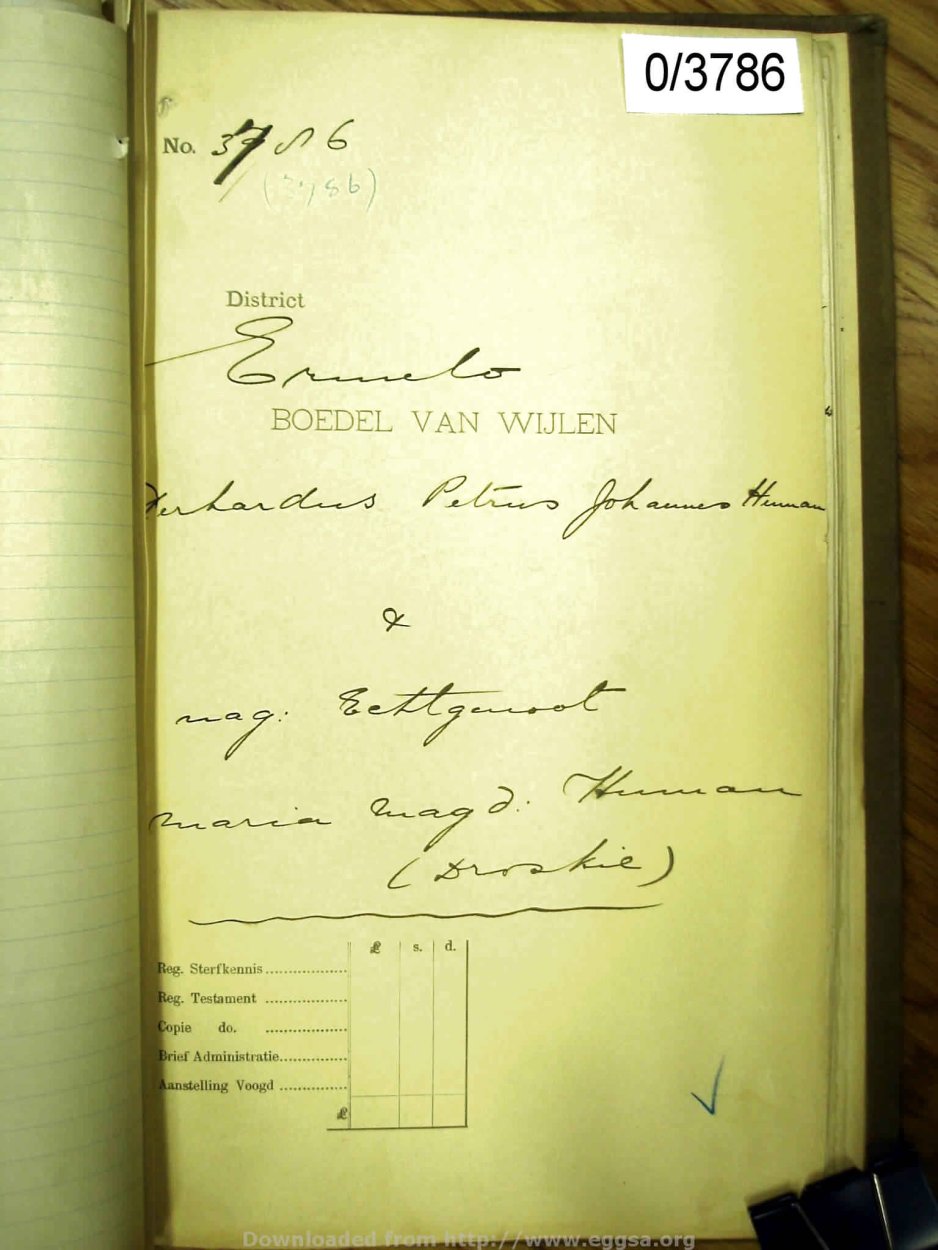 0/3786
No. 3786
(3786)
District
Ermelo
BOEDEL VAN WIJLEN
Gerhardus Petrus Johannes Human
&
nag: Echtgenoot
Maria Magd: Human
(Droskie)
£ s. d.
Reg. Sterfkennis..................
Reg. Testament ..................
Copie do. ..................
Brief Administratie...............
Aanstelling Voogd ...............
£
Downloaded from http://www.eggsa.org